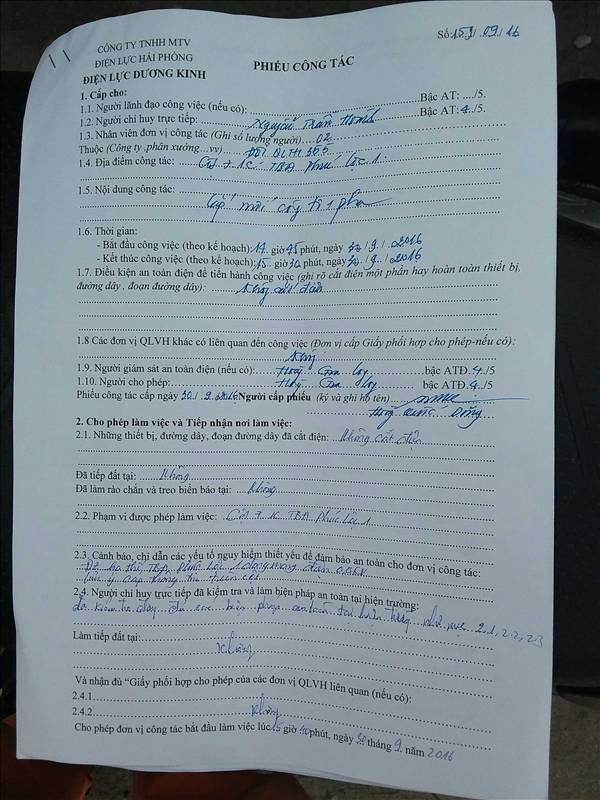 CÔNG TY TNHH MTV
ĐIỆN LỰC HẢI PHÒNG
ĐIỆN LỰC DƯƠNG KINH
Số: 159/.09/.16
PHIẾU CÔNG TÁC
1. Cấp cho:
1.1. Người lãnh đạo công việc (nếu có): Bậc AT: ..../5.
1.2. Người chỉ huy trực tiếp: Nguyễn Trần Bậc AT: 4./5.
1.3. Nhân viên đơn vị công tác (Ghi số lượng người) 02
Thuộc (Công ty ,phân xưởng...vv) Đội QLTH 355
1.4. Địa điểm công tác: Cột 7.1C TBA Phúc Lộc 1
1.5. Nội dung công tác:
Lắp mới công tơ 1 pha
1.6. Thời gian:
- Bắt đầu công việc (theo kế hoạch): 14 giờ 45 phút, ngày 30/.9./.2016
- Kết thúc công việc (theo kế hoạch): 15 giờ 30 phút, ngày 30/.9./.2016
1.7. Điều kiện an toàn điện để tiến hành công việc (ghi rõ cắt điện một phần hay hoàn toàn thiết bị,
đường dây , đoạn đường dây): Không cắt điện
1.8 Các đơn vị QLVH khác có liên quan đến công việc (Đơn vị cấp Giấy phối hợp cho phép-nếu có):
Không
1.9. Người giám sát an toàn điện (nếu có): bậc ATĐ. 4./5
1.10. Người cho phép: bậc ATĐ. 4./5
Phiếu công tác cấp ngày 30./.9.2016 Người cấp phiếu (ký và ghi họ tên)
Dũng
2. Cho phép làm việc và Tiếp nhận nơi làm việc:
2.1. Những thiết bị, đường dây, đoạn đường dây đã cắt điện: Không cắt điện
Đã tiếp đất tại: Không
Đã làm rào chắn và treo biển báo tại: Không
2.2. Phạm vi được phép làm việc: Cột 7.1C TBA Phúc Lộc 1
2.3. Cảnh báo, chỉ dẫn các yếu tố nguy hiểm thiết yếu để đảm bảo an toàn cho đơn vị công tác:
TBA Phúc Lộc 1 đang mang điện 0,4kV
2.4. Người chỉ huy trực tiếp đã kiểm tra và làm biện pháp an toàn tại hiện trường:
đã kiểm tra đầy đủ các biện pháp an toàn tại hiện trường như mục 2.1, 2.2, 2.3
Làm tiếp đất tại:
Không
Và nhận đủ “Giấy phối hợp cho phép của các đơn vị QLVH liên quan (nếu có):
2.4.1
2.4.2 Không
Cho phép đơn vị công tác bắt đầu làm việc lúc giờ phút, ngày 30 tháng 9 năm 2016